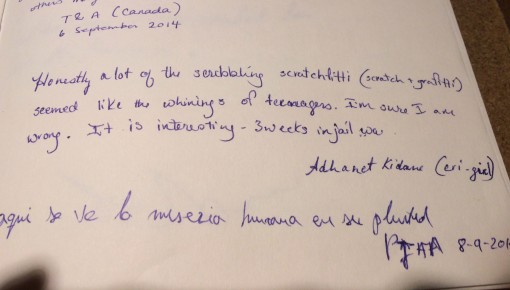 others
T & A (Canada)
6 September 2014
Honestly a lot of the scrabbaling scratchfitti (scratch + graffitti)
seemed like the whinings of teenagers. I'm sure I am
wrong. It is interesting - 3 weeks in jail
Adhanet Kidane (eri-girl)
aqui se ve la miseria humana en su
8-9-201